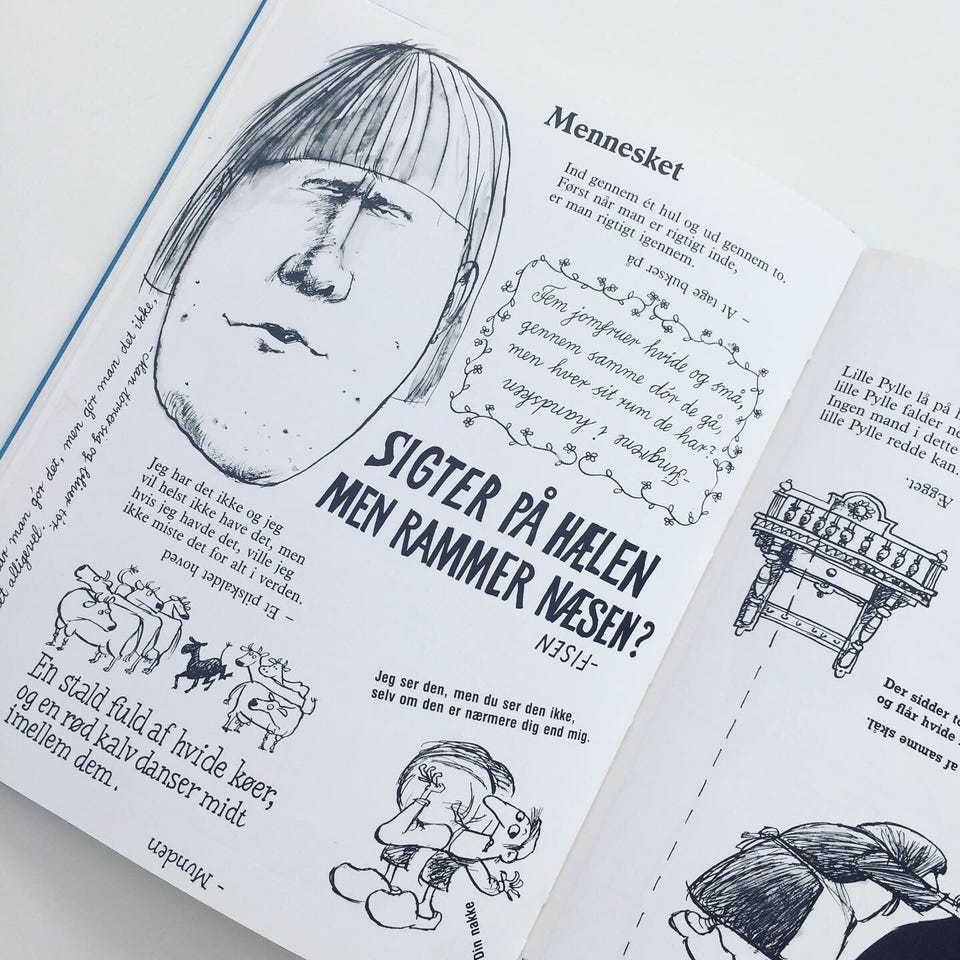 Mennesket
Ind gennem ét hul og ud gennem to.
Først når man er rigtigt inde,
er man rigtigt igennem.
– At tage bukser på
Fem jomfruer hvide og små,
gennem samme dør de gå,
men hver sit rum de har?
– Fingrene i handsken
SIGTER PÅ HÆLEN
MEN RAMMER NÆSEN?
–FISEN
man gør det, men gør man det ikke,
det alligevel.
tør
Jeg har det ikke og jeg
vil helst ikke have det, men
hvis jeg havde det, ville jeg
ikke miste det for alt i verden.
– Et pilskaldet hoved
En stald fuld af hvide køer,
og en rød kalv danser midt
imellem dem.
–Munden
Jeg ser den, men du ser den ikke,
selv om den er nærmere dig end mig.
Din nakke
Lille Pylle lå på
lille Pylle falder
Ingen mand i dette
lille Pylle redde kan.
Ægget.
Der sidder
og flår hvide
af samme skål.